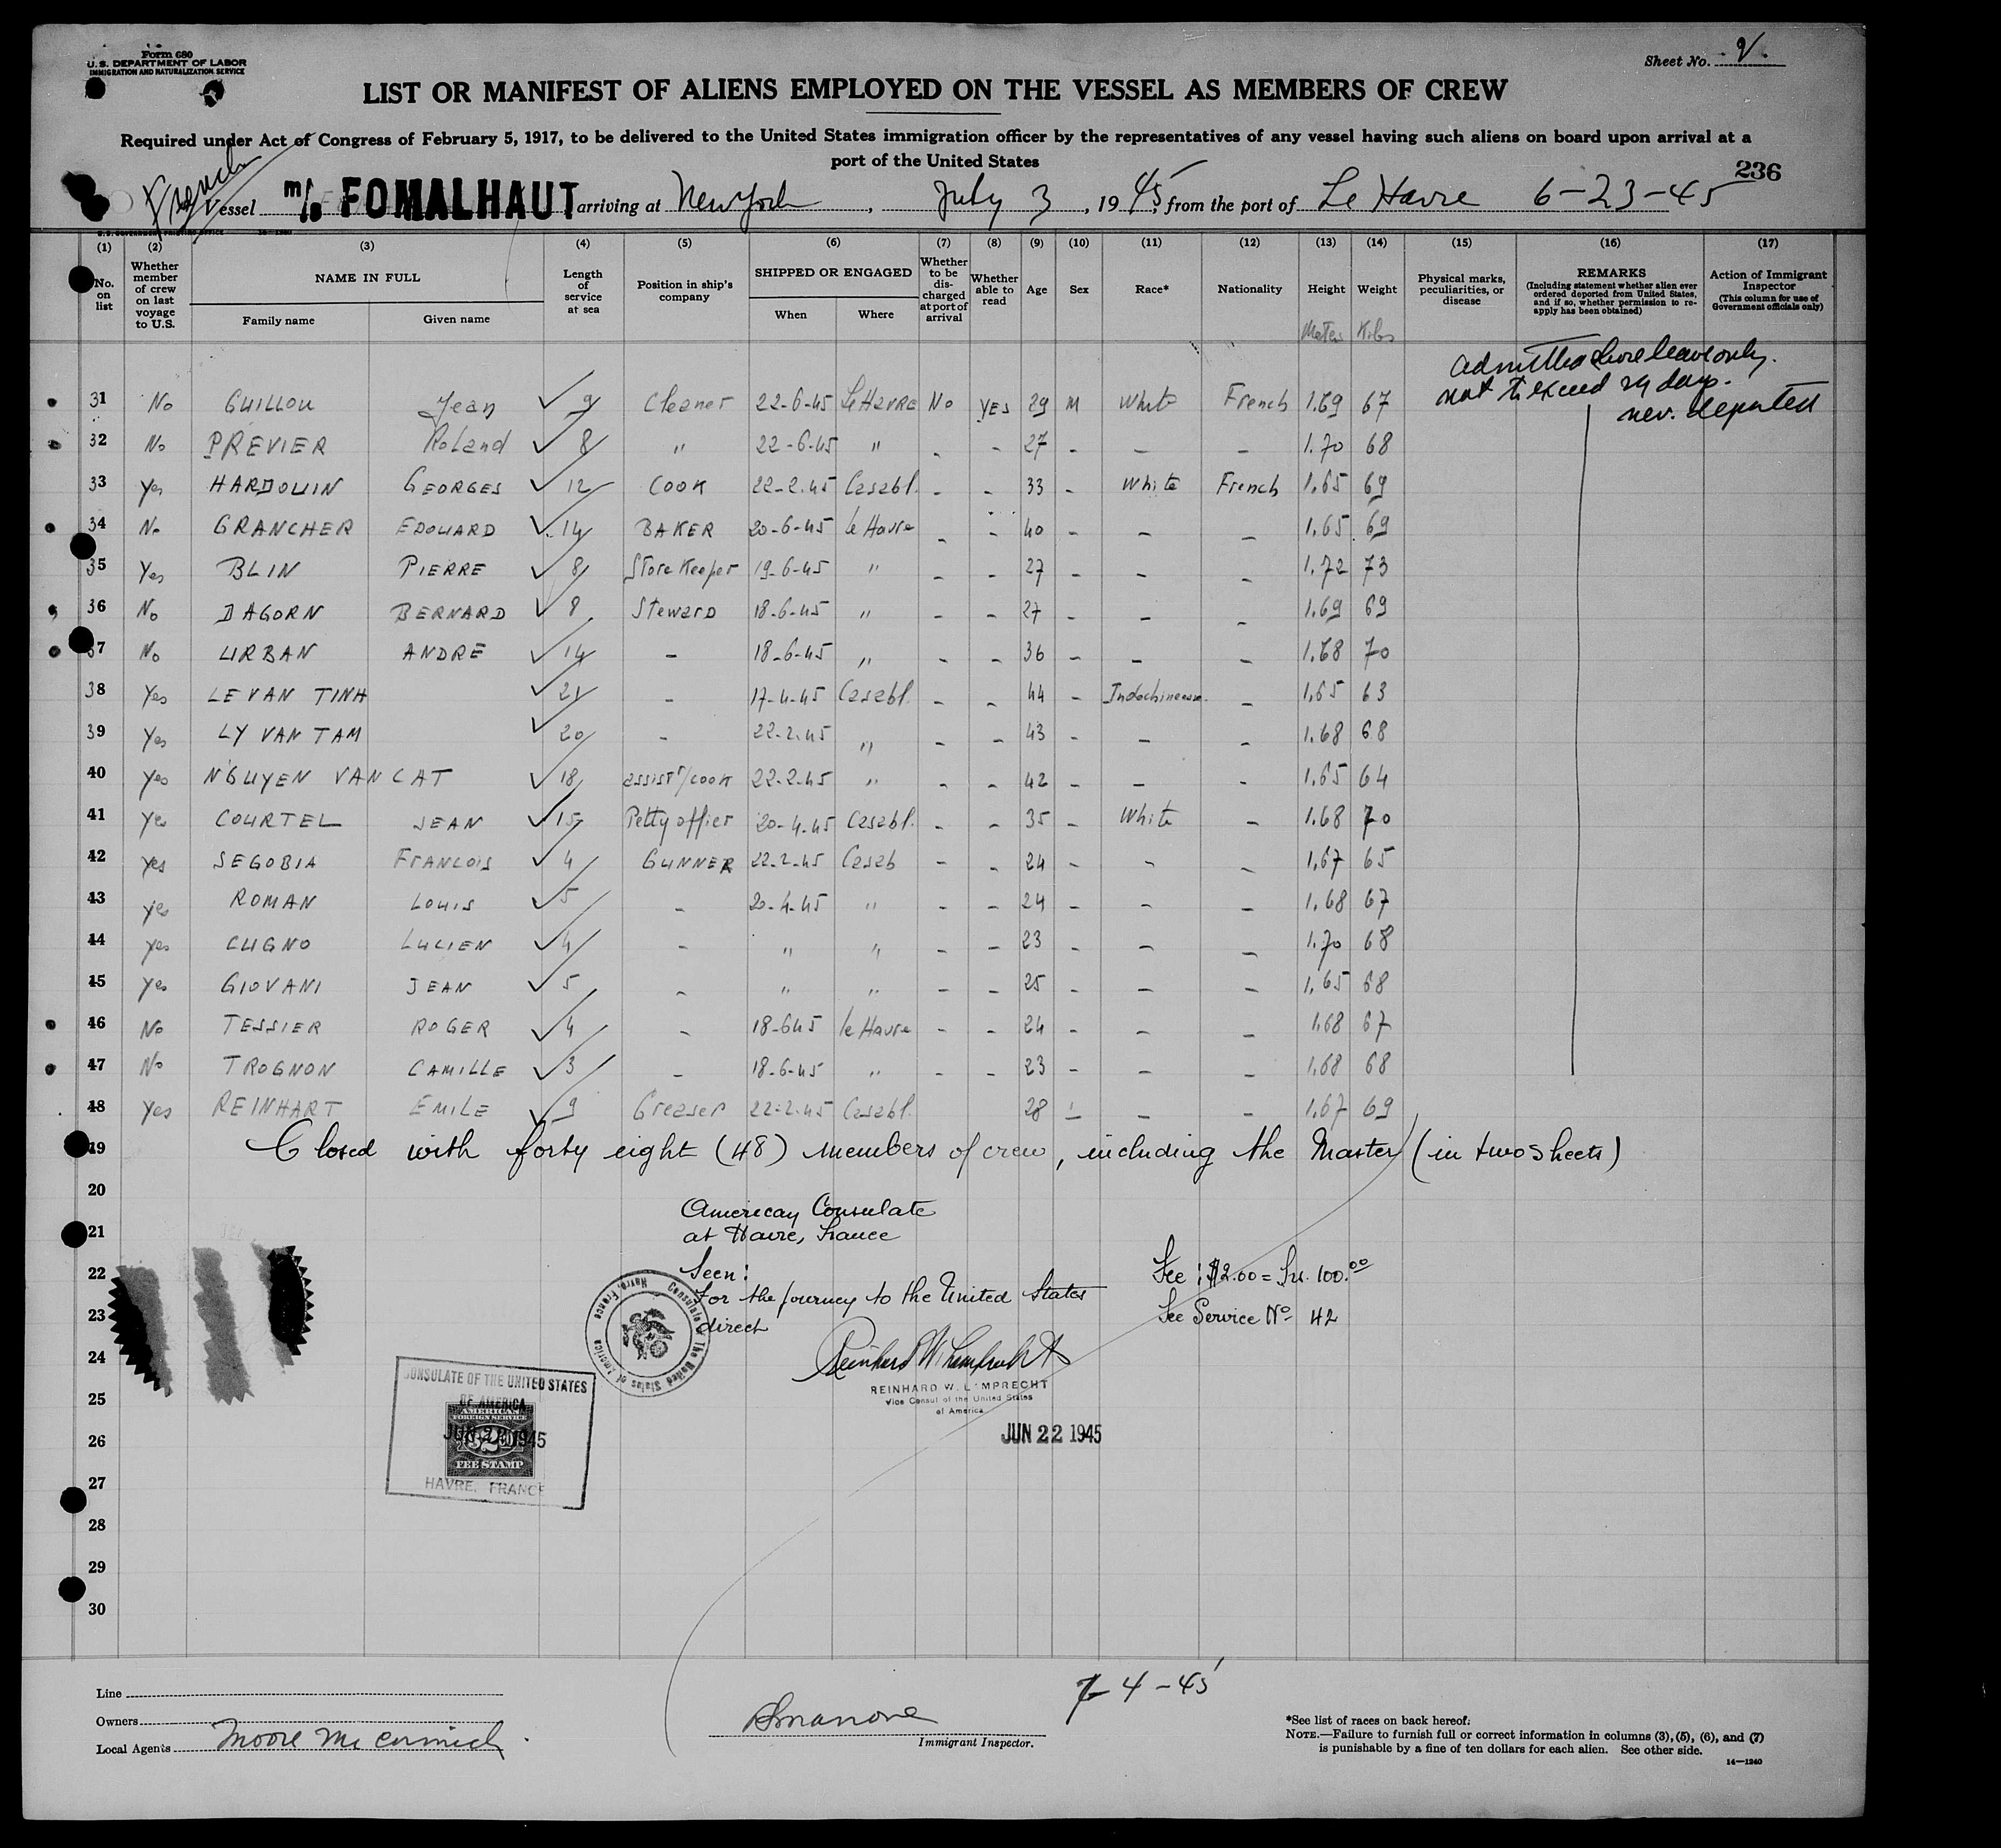 Form 680
U.S. DEPARTMENT OF LABOR
IMMIGRATION AND NATURALIZATION SERVICE
Sheet No. 2
LIST OR MANIFEST OF ALIENS EMPLOYED ON THE VESSEL AS MEMBERS OF CREW
Required under Act of Congress of February 5, 1917, to be delivered to the United States immigration officer by the representatives of any vessel having such aliens on board upon arrival at a
port of the United States
236
French
Vessel m/s FOMALHAUT arriving at New York, July 3, 1945, from the port of Le Havre 6-23-45
(1) (2) (3) (4) (5) (6) (7) (8) (9) (10) (11) (12) (13) (14) (15) (16) (17)
No. on list
Whether member of crew on last voyage to U.S.
NAME IN FULL
Family name
Given name
Length of service at sea
Position in ship's company
SHIPPED OR ENGAGED
When
Where
Whether to be discharged at port of arrival
Whether able to read
Age
Sex
Race*
Nationality
Height
Weight
Meters Kilos
Physical marks, peculiarities, or disease
REMARKS
(Including statement whether alien ever ordered deported from United States, and if so, whether permission to re-apply has been obtained)
Action of Immigrant Inspector
(This column for use of Government officials only)
admitted shore leave only.
not to exceed 29 days.
nev. deported
31 No GUILLOU Jean ✓ 9 Cleaner 22-6-45 Le HAVRE No YES 29 M White French 1.69 67
32 No PREVIER Roland ✓ 8 " 22-6-45 " - - 27 - - - 1.70 68
33 Yes HARDOUIN GEORGES ✓ 12 COOK 22-2-45 Casabl. - - 33 - White French 1.65 69
34 No GRANCHER EDOUARD ✓ 14 BAKER 20-6-45 le Havre - - 40 - - - 1.65 69
35 Yes BLIN PIERRE ✓ 8 Store Keeper 19-6-45 " - - 27 - - - 1.72 73
36 No DAGORN BERNARD ✓ 8 Steward 18-6-45 " - - 27 - - - 1.69 69
37 No URBAN ANDRE ✓ 14 - 18-6-45 " - - 36 - - - 1.68 70
38 Yes LE VAN TINH ✓ 21 - 17-4-45 Casabl. - - 44 - Indochinese - 1.65 63
39 Yes LY VAN TAM ✓ 20 - 22-2-45 " - - 43 - - - 1.68 68
40 Yes N'GUYEN VAN CAT ✓ 18 assistt/cook 22-2-45 " - - 42 - - - 1.65 64
41 Yes COURTEL JEAN ✓ 15 Petty officer 20-4-45 Casabl. - - 35 - White - 1.68 70
42 Yes SEGOBIA FRANCOIS ✓ 4 GUNNER 22-2-45 Casab - - 24 - - - 1.67 65
43 Yes ROMAN LOUIS ✓ 5 - 20-4-45 " - - 24 - - - 1.68 67
44 Yes CUGNO LUCIEN ✓ 4 - " " - - 23 - - - 1.70 68
45 Yes GIOVANI JEAN ✓ 5 - " " - - 25 - - - 1.65 68
46 No TESSIER ROGER ✓ 4 - 18-6 45 le Havre - - 24 - - - 1.68 67
47 No TROGNON CAMILLE ✓ 3 - 18-6-45 " - - 23 - - - 1.68 68
48 Yes REINHART EMILE ✓ 9 Greaser 22-2-45 Casabl. 28 - - - 1.67 69
19 Closed with forty eight (48) members of crew, including the Master (in two sheets)
20
American Consulate
21
at Havre, France
22
Seen:
Fee: $2.00 = Frs. 100.00
For the journey to the United States
23
direct
Fee Service No 42
Consulate of The United States of America Havre, France
24
REINHARD W. LAMPRECHT
Vice Consul of the United States
of America
25
CONSULATE OF THE UNITED STATES
OF AMERICA
AMERICAN
FOREIGN SERVICE
JUN 22 1945
$2
FEE STAMP
HAVRE, FRANCE
26
JUN 22 1945
27
28
29
30
Line
Owners
Local Agents Moore McCormick
7-4-45
Immigrant Inspector.
*See list of races on back hereof.
NOTE.—Failure to furnish full or correct information in columns (3), (5), (6), and (7)
is punishable by a fine of ten dollars for each alien. See other side.
14—1240